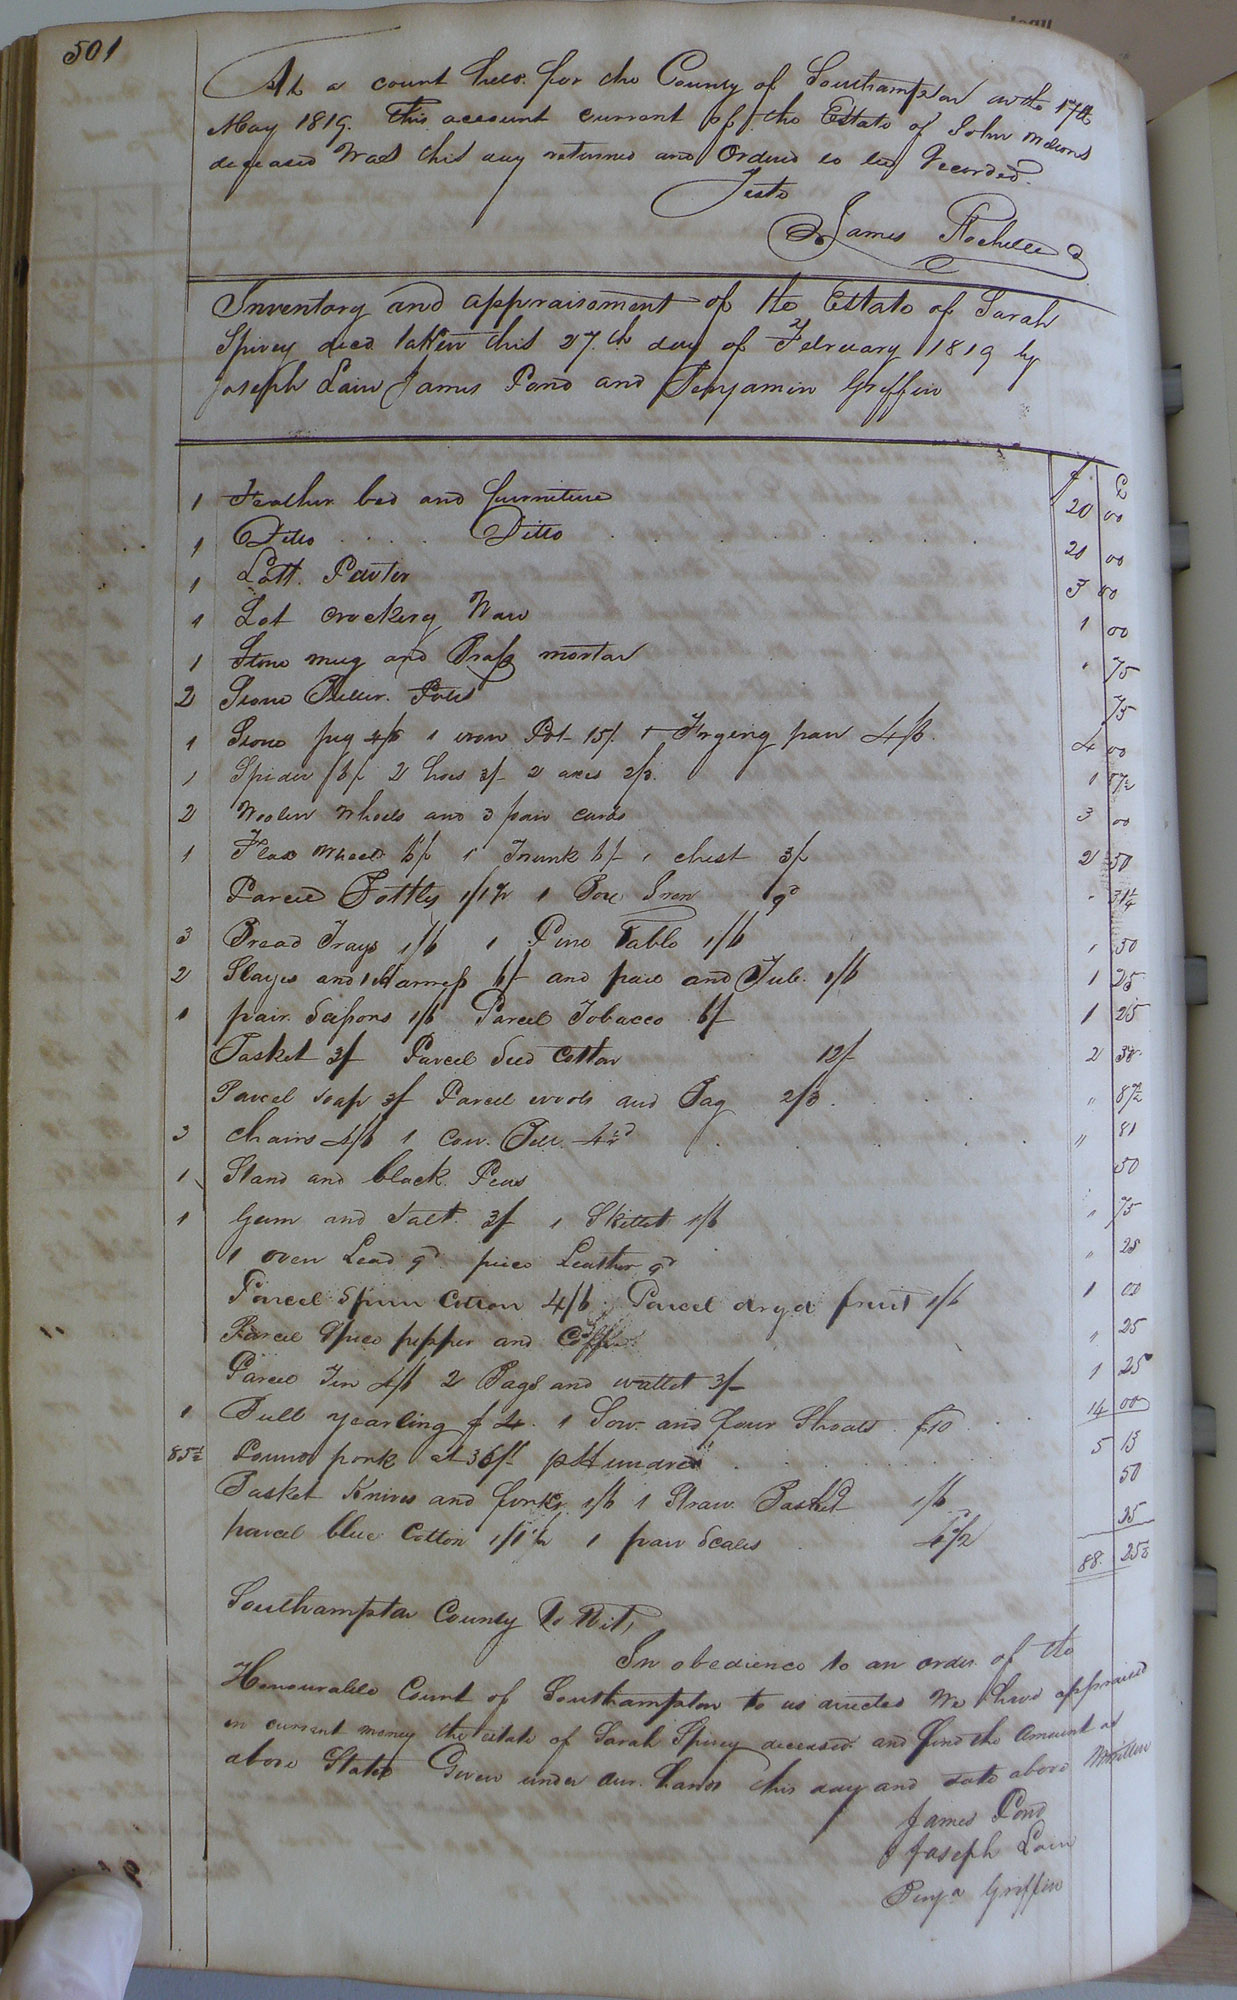 501
At a court held for the County of Southampton on the 17th
May 1819. This account current of the Estate of John
deceased Was this day returned and Ordered to be Recorded.
Teste
James Rochelle
Inventory and appraisement of the Estate of Sarah
Spivey decd taken this 27th day of February 1819 by
Joseph Lain James Pond and Benjamin Griffin
$ C
1 Feather bed and furniture 20 00
1 Ditto Ditto 20 00
1 Lott. Pewter 3 00
1 Lot crockery Ware 1 00
1 Stone mug and Brass mortar " 75
2 Stone Butter. Pots 75
1 Stone jug 4/6 1 iron Pot 15/. 1 Frying pan 4/6. 4 00
1 Spider /6/ 2 hoes 3/ 2 axes 2/3. 1 87½
2 Woolen Wheels and 3 pair cards 3 00
1 Flax Wheel 6/ 1 Trunk 6/ 1 chest 3/ 2 50
Parcel Bottles 1/1½ 1 Box Iron 9d - 31¼
3 Bread Trays 1/6 1 Pine Table 1/6 , 50
2 Slayes and 1 Harness 6/ and pail and Tub. 1/6 1 25
1 pair. Scissors 1/6 Parcel Tobacco 6/ 1 25
Basket 3/ Parcel Seed Cotton 12/ 2 50
Parcel soap 3/ Parcel wool and Bag 2/3. " 87½
3 chairs 4/6 1 Cow. Bell 4½d " 81
1 Stand and black Peas 50
1 Gum and Salt. 3/ 1 Skillet 1/6 " 75
1 oven Lead 9d piece Leather 9d " 25
Parcel Spun Cotton 4/6. Parcel dryd fruit 1/6 1 00
Parcel Spice pepper and Coffee " 25
Parcel Tin 4/6 2 Bags and wallet 3/- 1 25
1 Bull yearling $4. 1 Sow and four Shoats $10 14 00
85½ Pounds pork at 36/ pr Hundred 5 13
Basket Knives and forks 1/6 1 Straw Basket 1/6 50
parcel blue Cotton 1/1½ 1 pair Scales 4½ 25
88. 25½
Southampton County to Wit,
In obedience to an order of the
Honourable Court of Southampton to us directed We have appraised
in current money the estate of Sarah Spivey deceased and find the Amount as
above Stated Given under our. hands this day and date above Written
James Pond
Joseph Lain
Benja Griffin